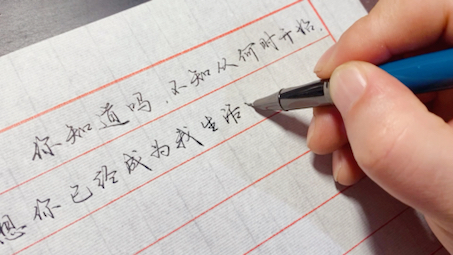 你知道吗，不知从何时开始，
想你已经成为我生活